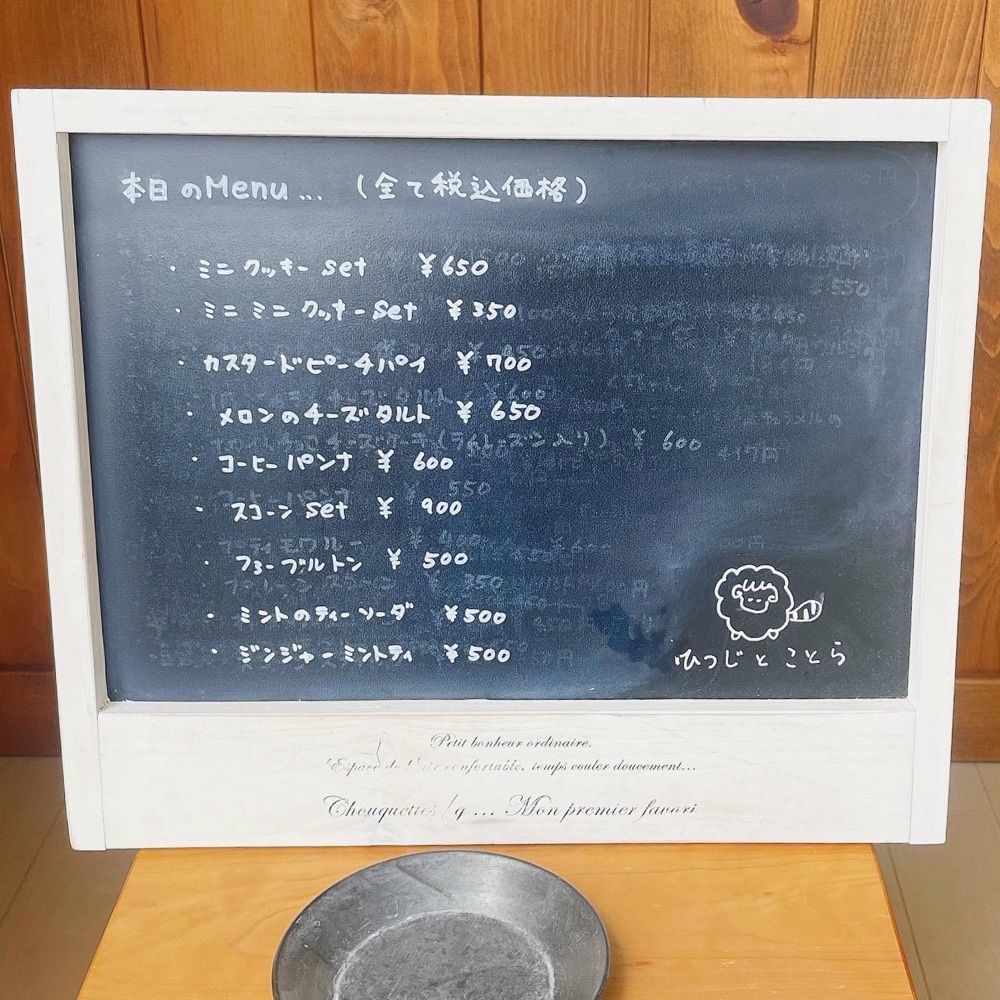 本日のMenu... (全て税込価格)
・ミニクッキーset ¥650
・ミニミニクッキーset ¥350
・カスタードピーチパイ ¥700
・メロンのチーズタルト ¥650
・コーヒーパンナ ¥600
・スコーンset ¥900
・フョーブルトン ¥500
・ミントのティーソーダ ¥500
・ジンジャーミントティ ¥500
ひつじとことら
Petit bonheur ordinaire.
confortable, temps couler doucement...
... Mon premier favori